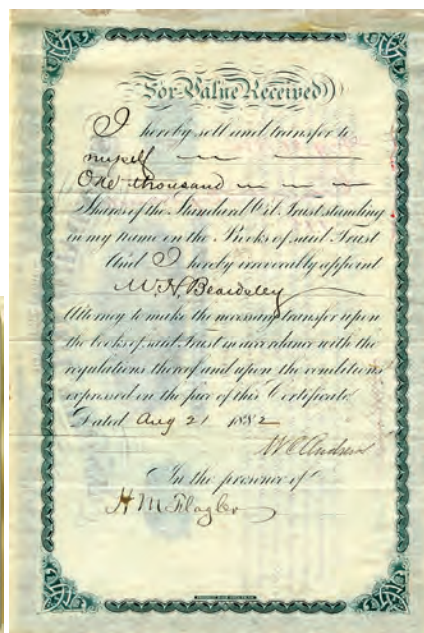 For Value Received
I hereby sell and transfer to
myself
One thousand
Shares of the Standard Oil Trust standing
in my name on the Books of said Trust
And I hereby irrevocably appoint
W. H. Beardsley
Attorney to make the necessary transfer upon
the books of said Trust in accordance with the
regulations thereof and upon the conditions
expressed on the face of this Certificate
Dated Aug 21 1882
W C Andrews
In the presence of
H M Flagler